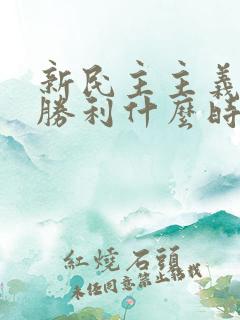 新民主主義
勝利什麼時
紅燒石頭
未任同意禁止轉載